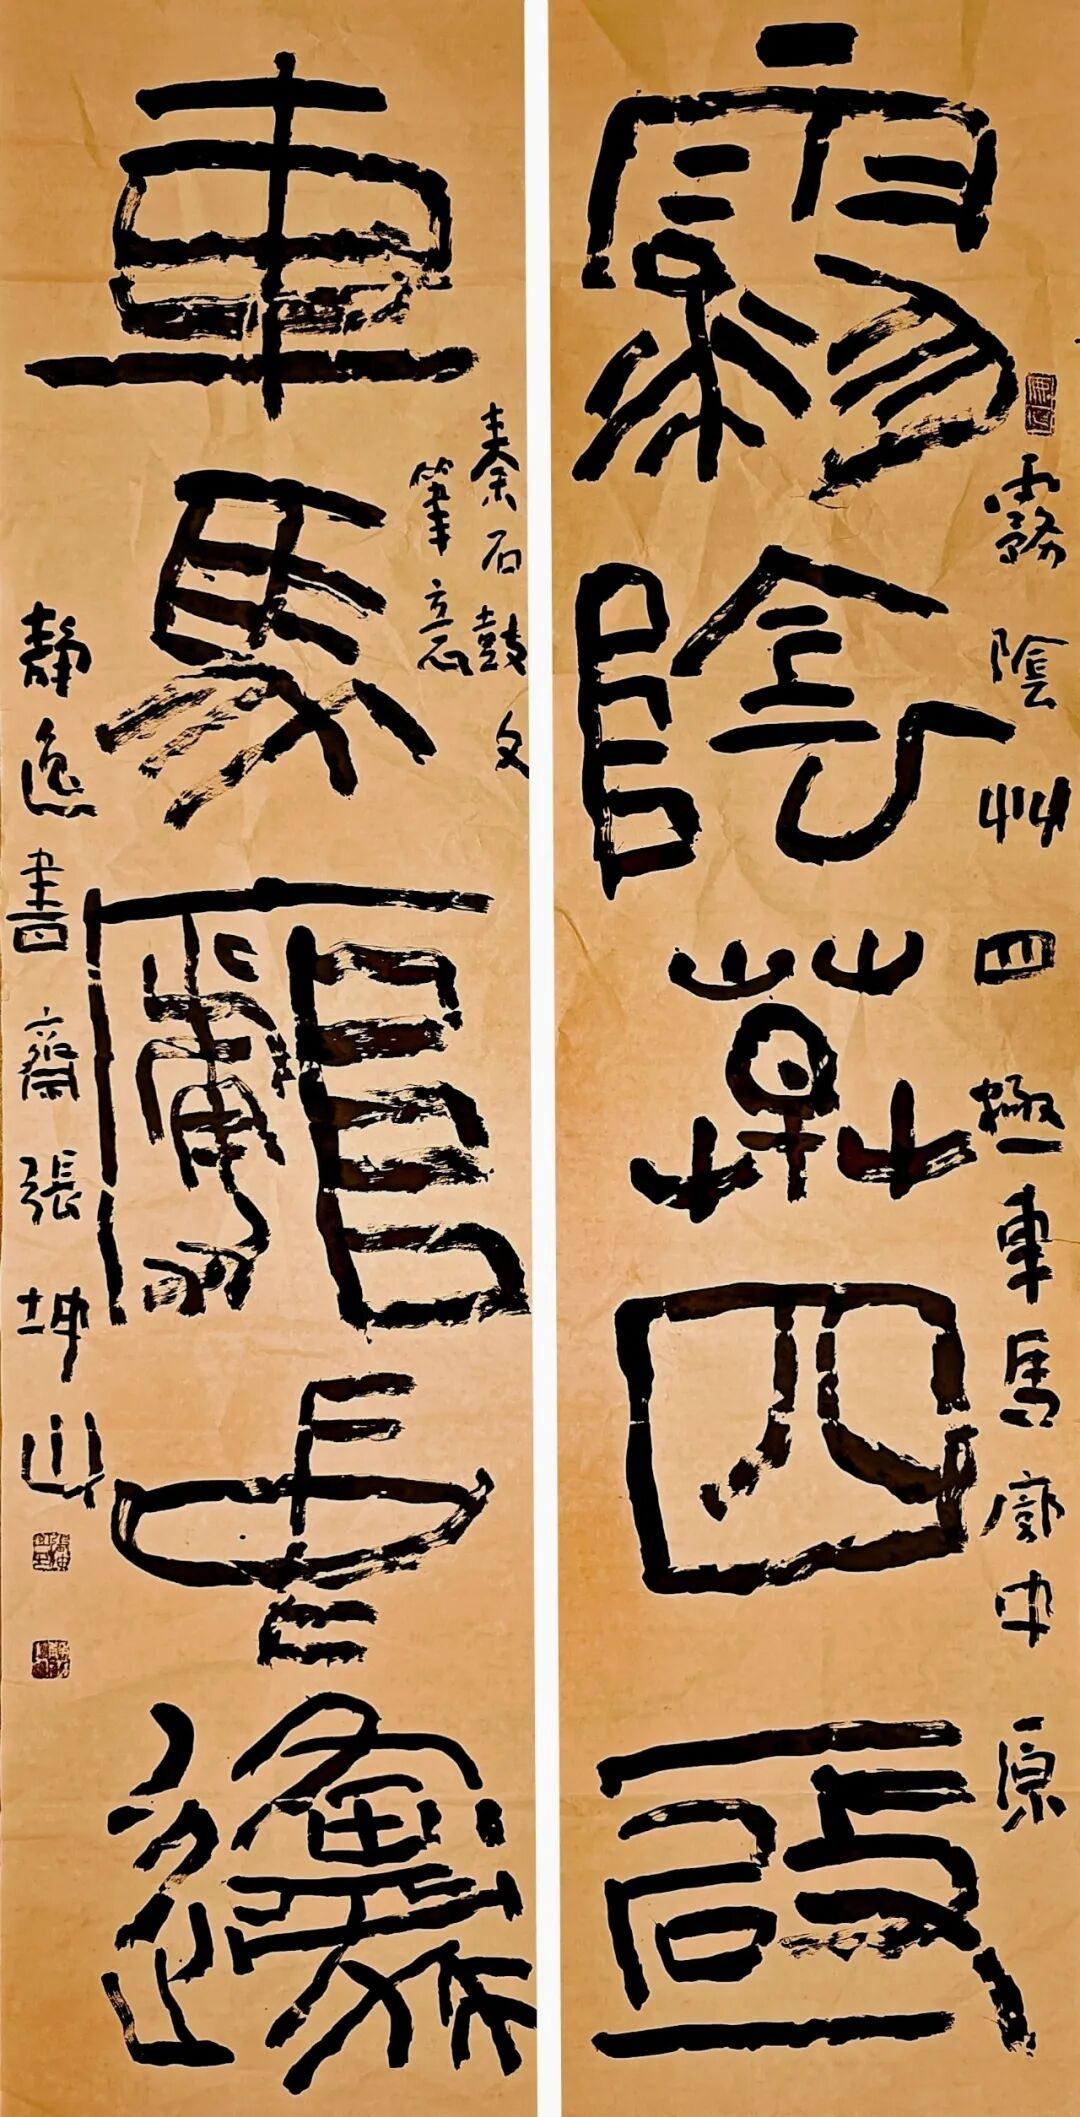 霧陰草四極
霧陰艸四極車馬廓中原
車馬廓中原
秦石鼓文
筆意
靜逸書齋張坤山